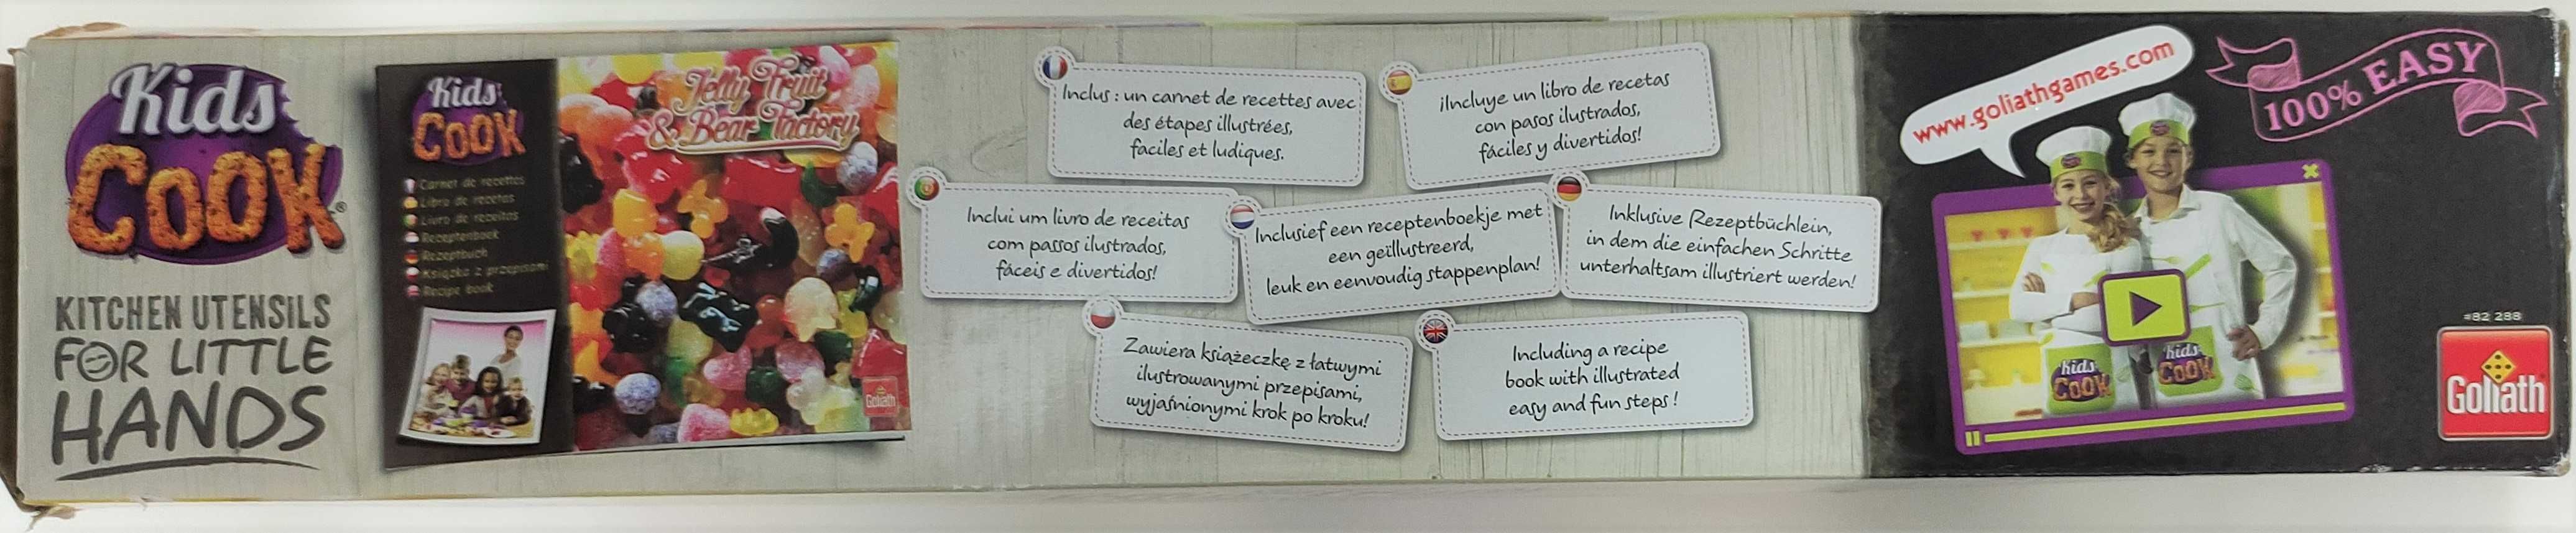 Kids
COOK®
KITCHEN UTENSILS
FOR LITTLE
HANDS
Kids
COOK
Carnet de recettes
Libro de recetas
Livro de receitas
Receptenboek
Rezeptbuch
Książka z przepisami
Recipe book
Jelly Fruit
& Bear Factory
Goliath
Inclus : un carnet de recettes avec
des étapes illustrées,
faciles et ludiques.
¡Incluye un libro de recetas
con pasos ilustrados,
fáciles y divertidos!
Inclui um livro de receitas
com passos ilustrados,
fáceis e divertidos!
Inclusief een receptenboekje met
een geïllustreerd,
leuk en eenvoudig stappenplan!
Inklusive Rezeptbüchlein,
in dem die einfachen Schritte
unterhaltsam illustriert werden!
Zawiera książeczkę z łatwymi
ilustrowanymi przepisami,
wyjaśnionymi krok po kroku!
Including a recipe
book with illustrated
easy and fun steps !
www.goliathgames.com
100% EASY
kids
COOK
kids
COOK
#82 288
Goliath